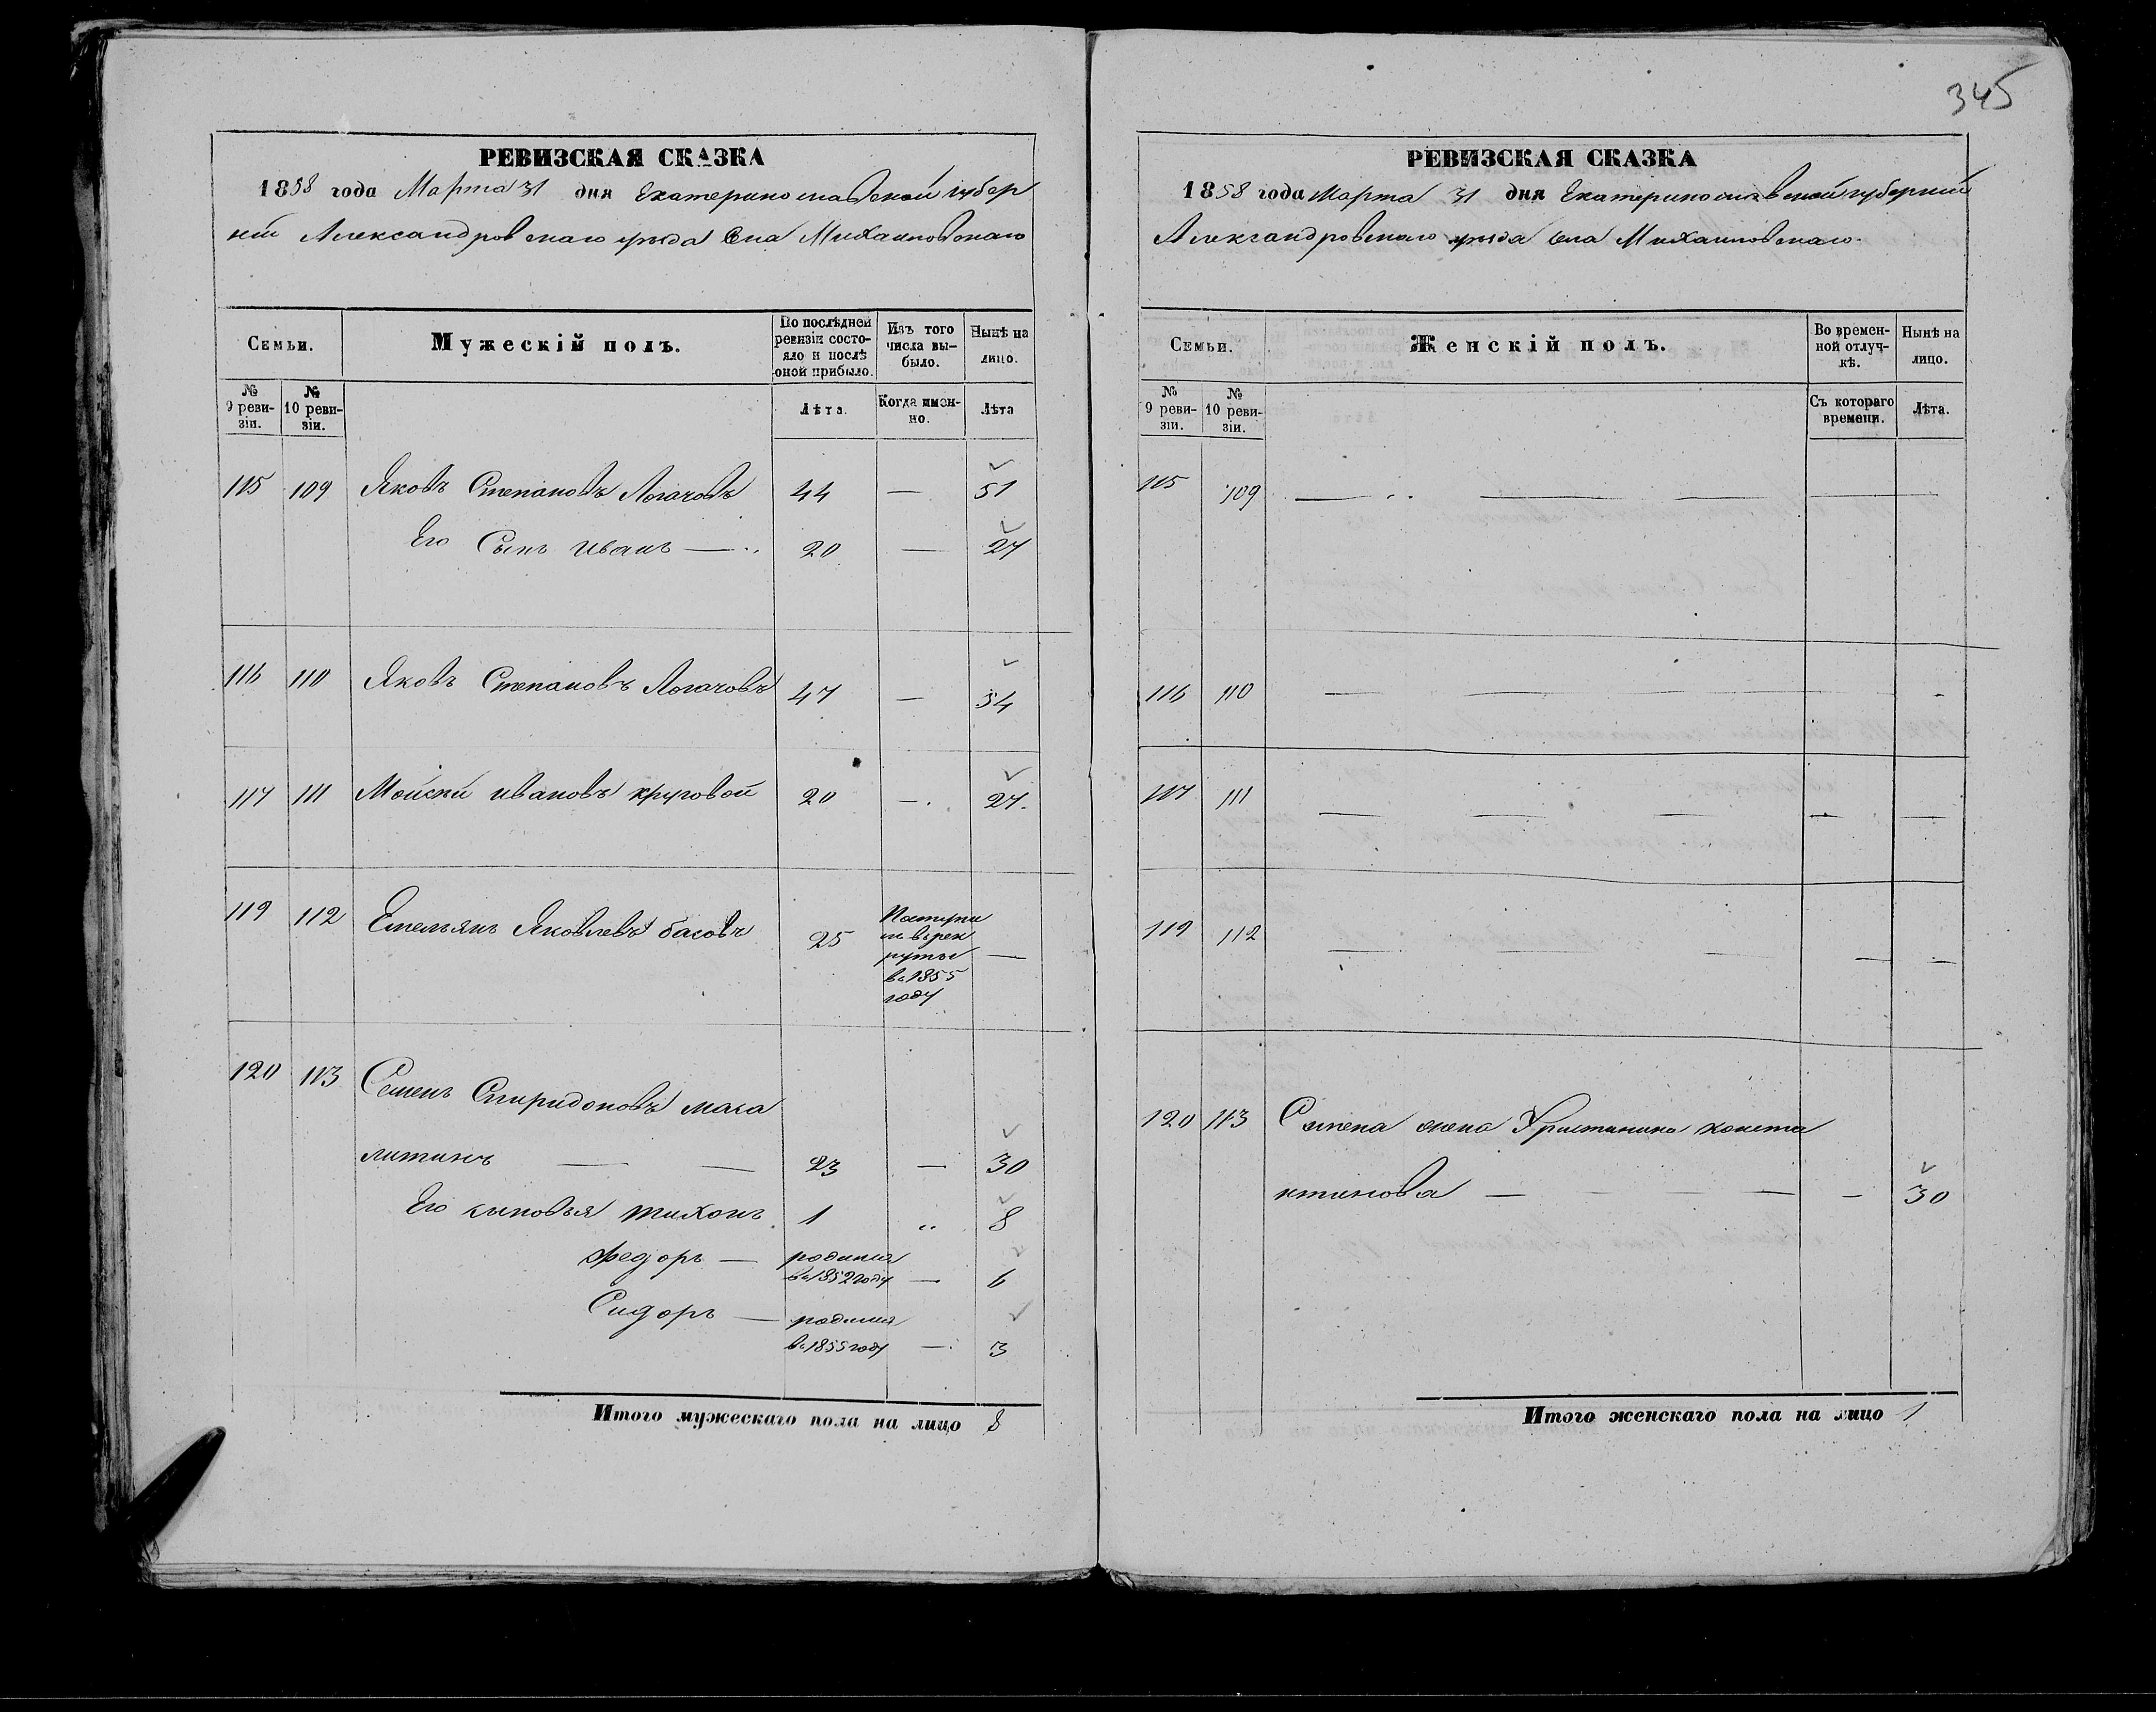 345
РЕВИЗСКАЯ СКАЗКА
1858 года Марта 31 дня Екатеринославской губер
ніи Александровскаго уезда Села Михайловскаго
Семьи.
Мужескій полъ.
По послѣдней ревизіи состояло и послѣ оной прибыло.
Изъ того числа вы-было.
Нынѣ на лицо.
№ 9 реви-зіи.
№ 10 реви-зіи.
Лѣта.
Когда имен-но.
Лѣта
115 109 Яковъ Степановъ Логачовъ 44 — 51
Его Сынъ иванъ — 20 — 27
116 110 Яковъ Степановъ Логачовъ 47 — 54
117 111 Мойсей ивановъ круговой 20 — 27.
119 112 Емельянъ Яковлевъ басовъ 25 Поступи
лъ в рек
руты
въ 1855
году
—
120 113 Семенъ Спиридоновъ мака
литинъ — — 23 — 30
Его сыновья тихонъ 1 „ 8
федоръ — родился
въ 1852 году — 6
Сидоръ — родился
въ 1855 году — 3
Итого мужескаго пола на лицо 8
РЕВИЗСКАЯ СКАЗКА
1858 года Марта 31 дня Екатеринославской губерніи
Александровскаго уезда села Михайловскаго.
Семьи.
Женскій полъ.
Во времен-ной отлуч-кѣ.
Нынѣ на лицо.
№ 9 реви-зіи.
№ 10 реви-зіи.
Съ котораго времени.
Лѣта.
115 109 — — — —
116 110 — — — —
117 111 — — — — —
119 112 — — — — —
120 113 Семена жена Християна конста
нтинова — — — — — 30
Итого женскаго пола на лицо 1